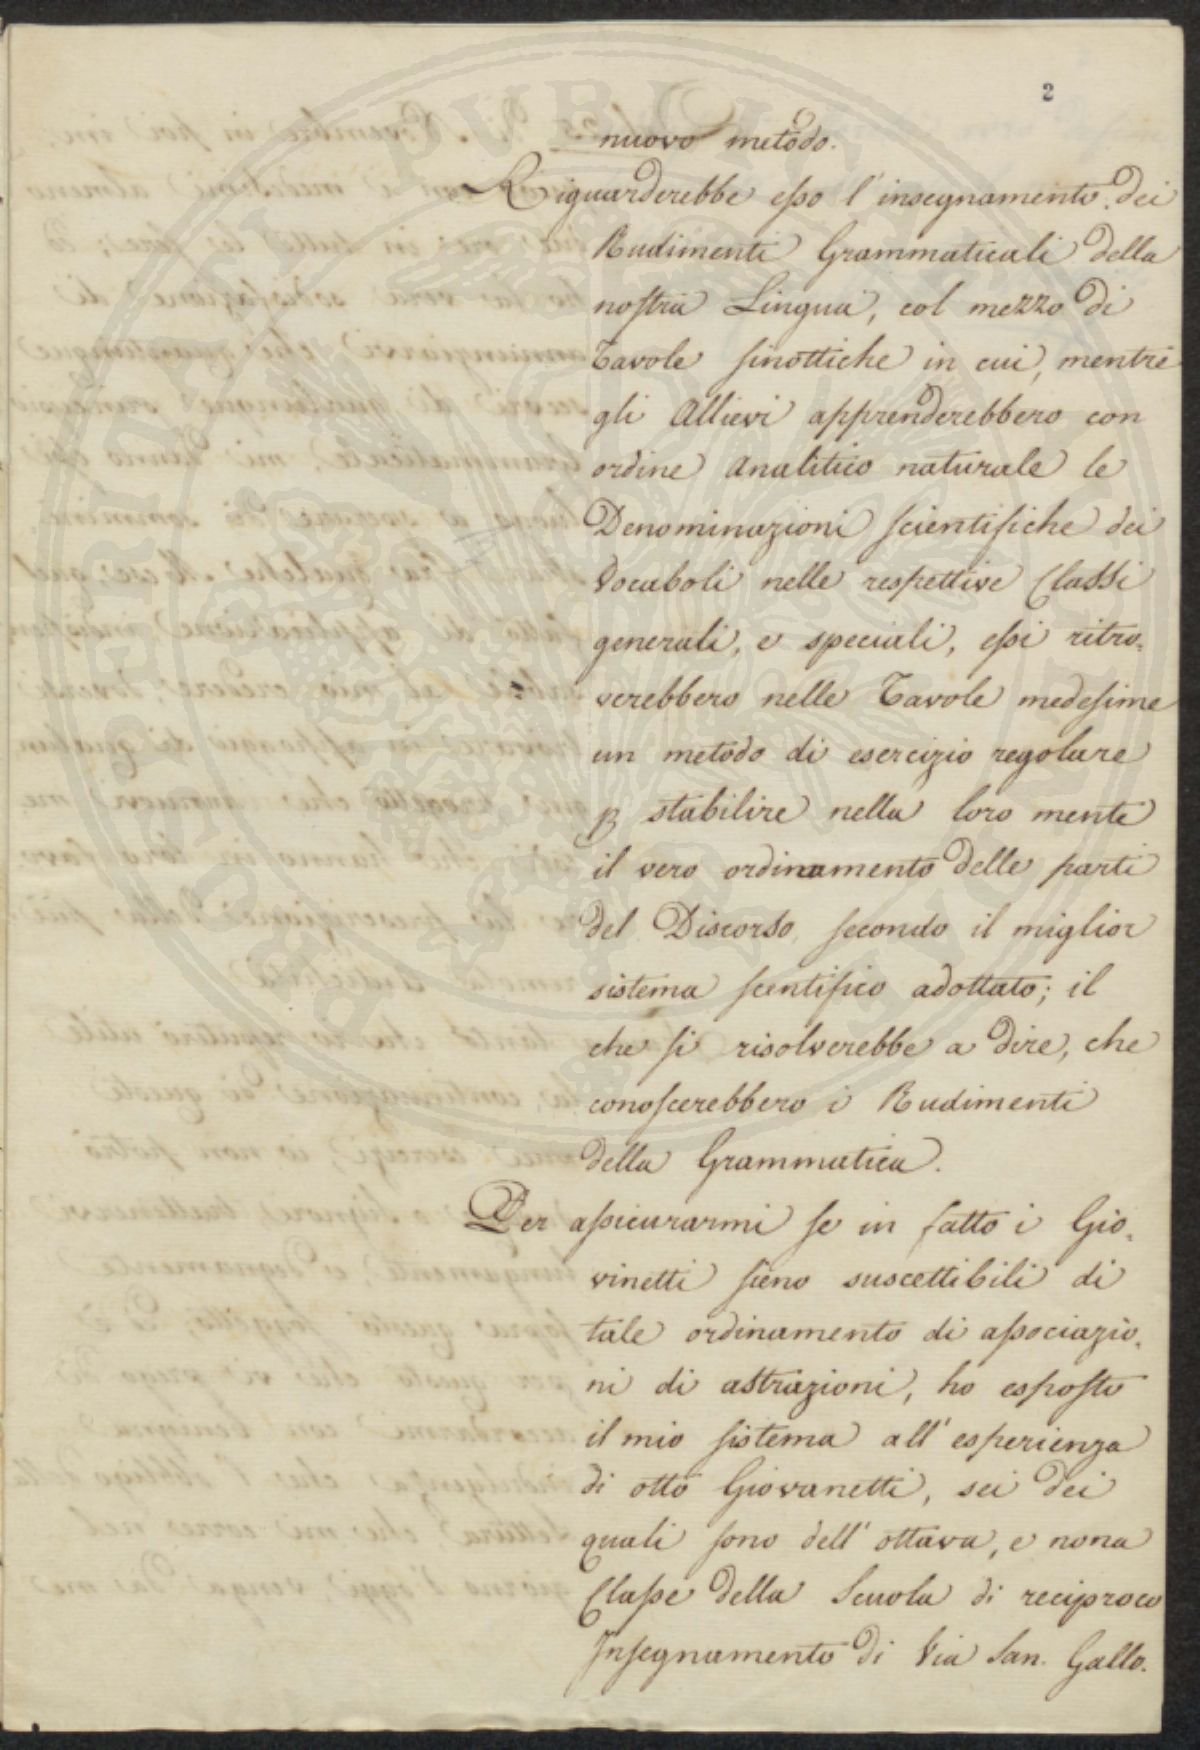 2
nuovo metodo.
Riguarderebbe esso l'insegnamento dei
Rudimenti Grammaticali della
nostra Lingua, col mezzo di
Tavole sinottiche in cui, mentre
gli Allievi apprenderebbero con
ordine analitico naturale le
Denominazioni scientifiche dei
Vocaboli nelle respettive Classi
generali, e speciali, essi ritro-
verebbero nelle Tavole medesime
un metodo di esercizio regolare
p stabilire nella loro mente
il vero ordinamento delle parti
del Discorso secondo il miglior
sistema scentifico adottato; il
che si risolverebbe a dire, che
conoscerebbero i Rudimenti
della Grammatica.
Per assicurarmi se in fatto i Gio-
vinetti sieno suscettibili di
tale ordinamento di associazio-
ni di astrazioni, ho esposto
il mio sistema all'esperienza
di otto Giovanetti, sei dei
quali sono dell'ottava, e nona
Classe della Scuola di reciproco
Insegnamento di Via San Gallo.